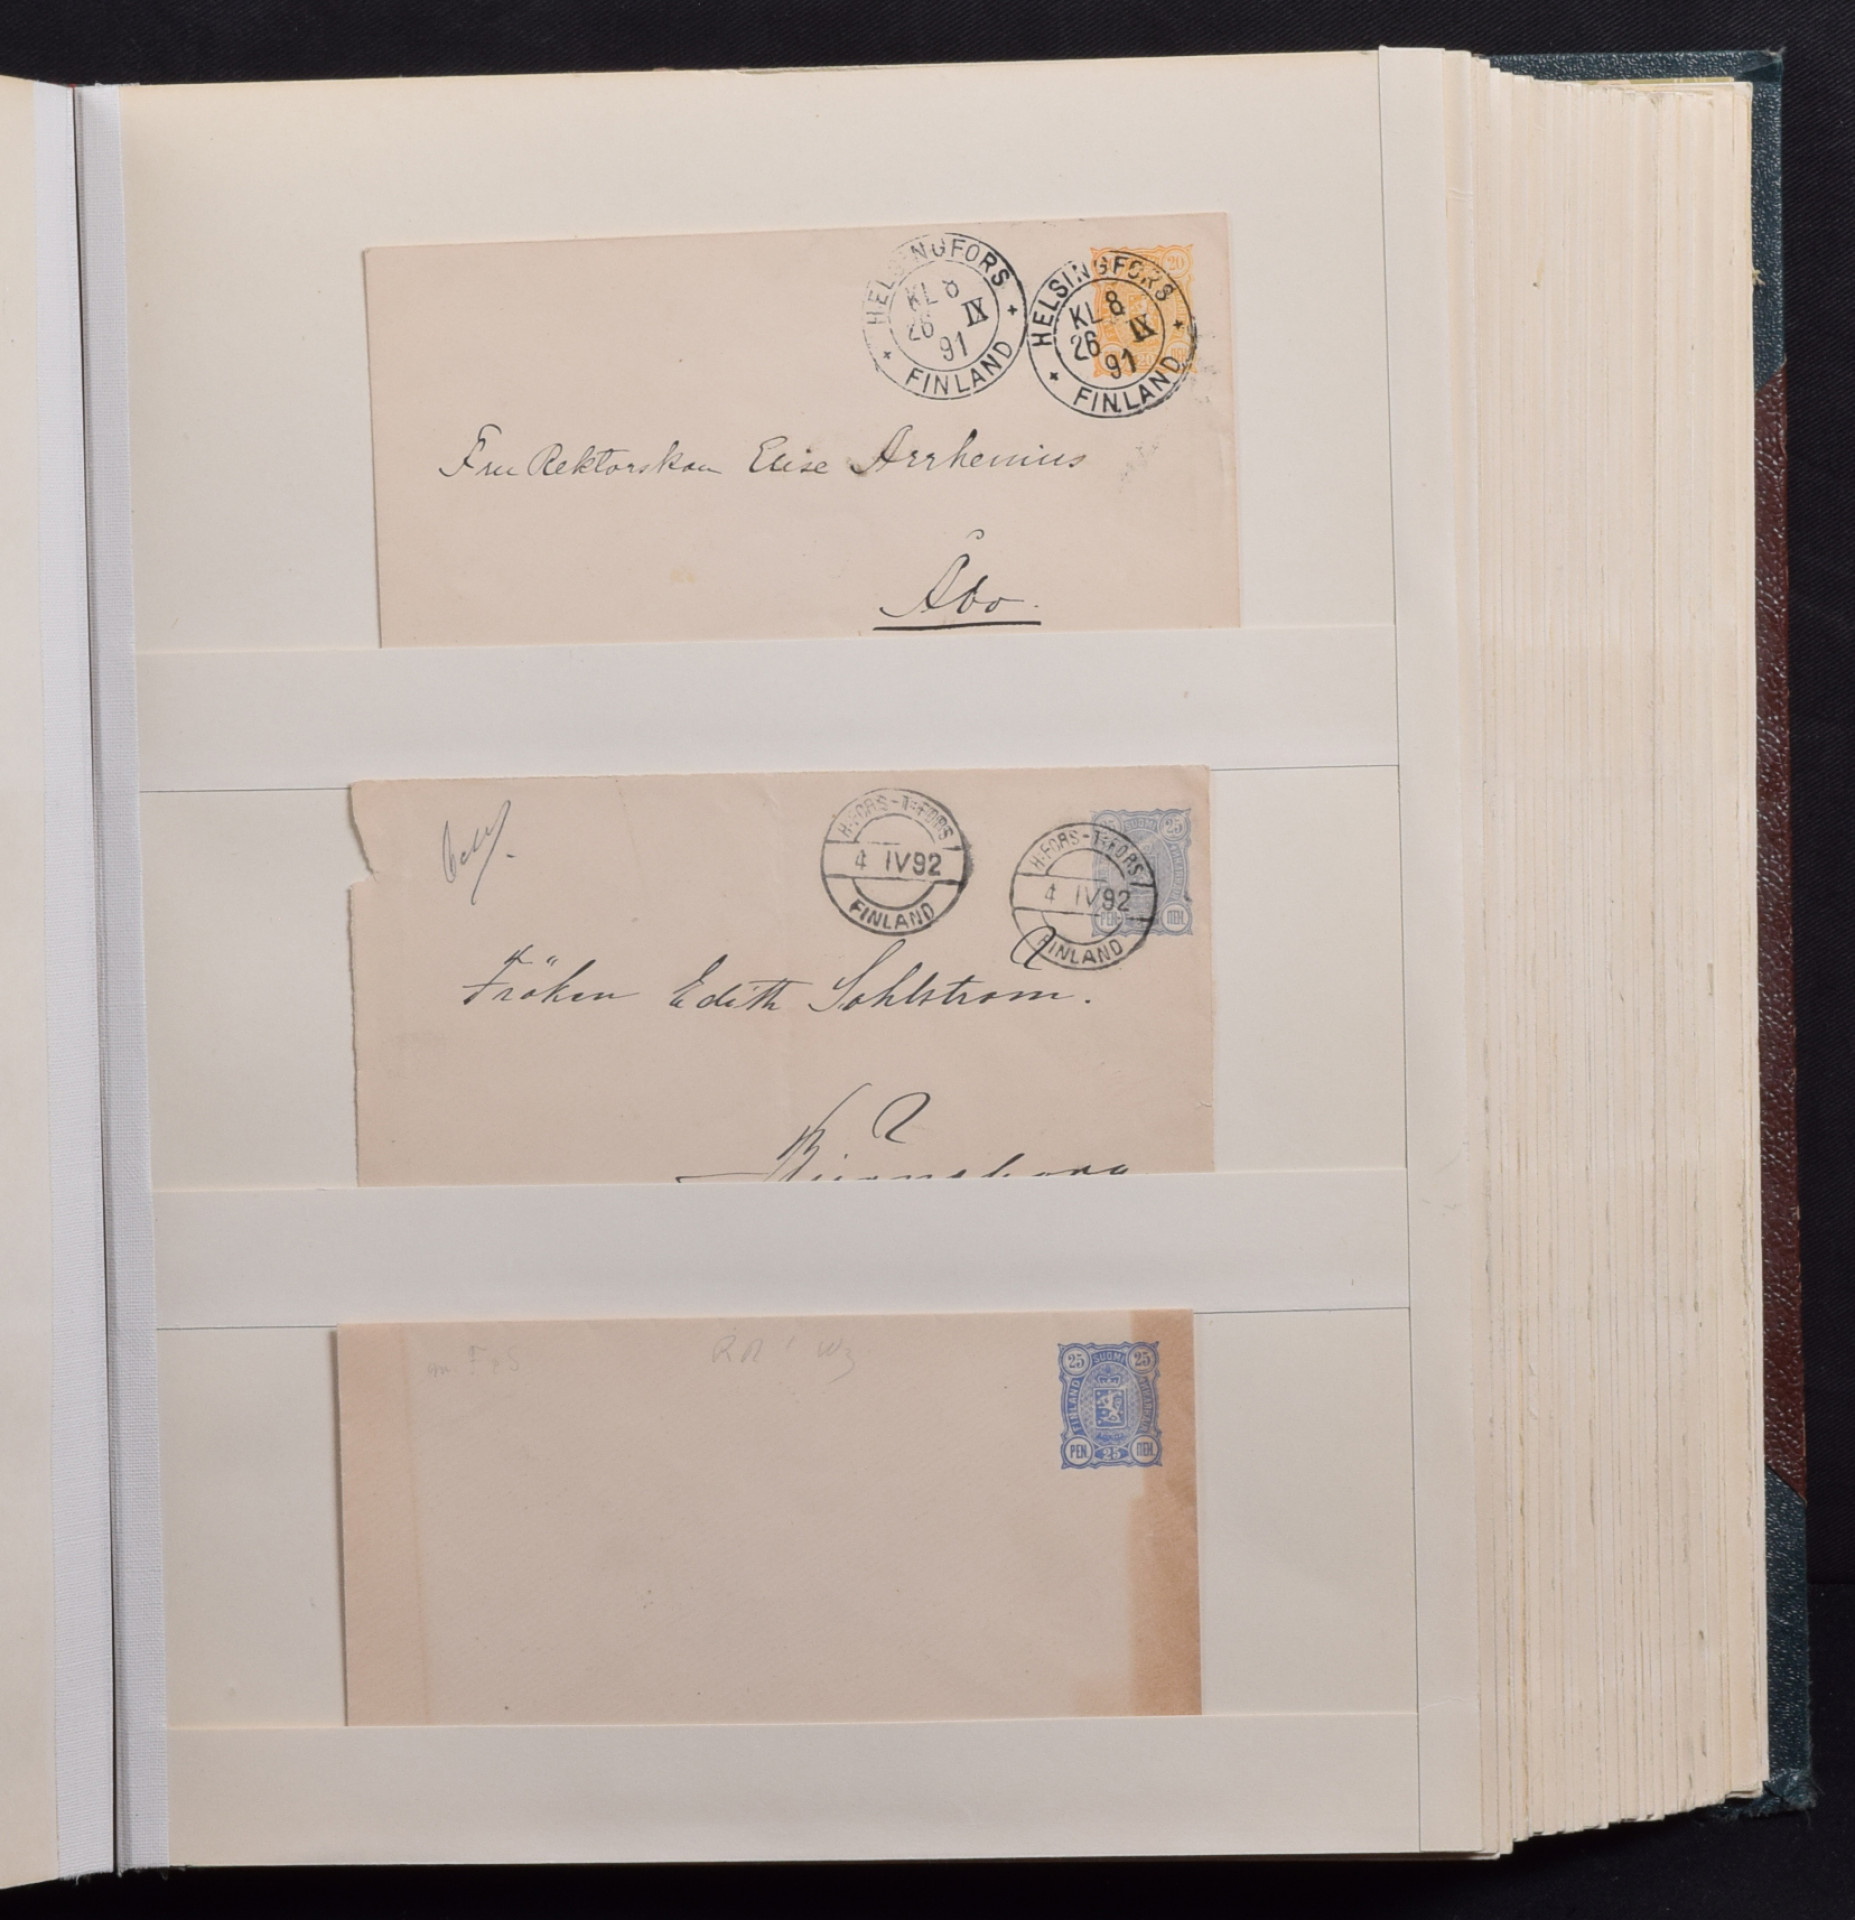 HELSINGFORS
KL 8
26 IX
91
FINLAND
20
HELSINGFORS
KL 8
26 IX
91
FINLAND
20
Fru Rektorskan Elise Arrhenius
Åbo.
H:FORS-T:FORS
4 IV 92
FINLAND
H:FORS-T:FORS
4 IV 92
FINLAND
25 SUOMI 25
PEN ПЕН
Fröken Edith Sohlström.
25 SUOMI 25
FINLAND
PEN 25 ПЕН